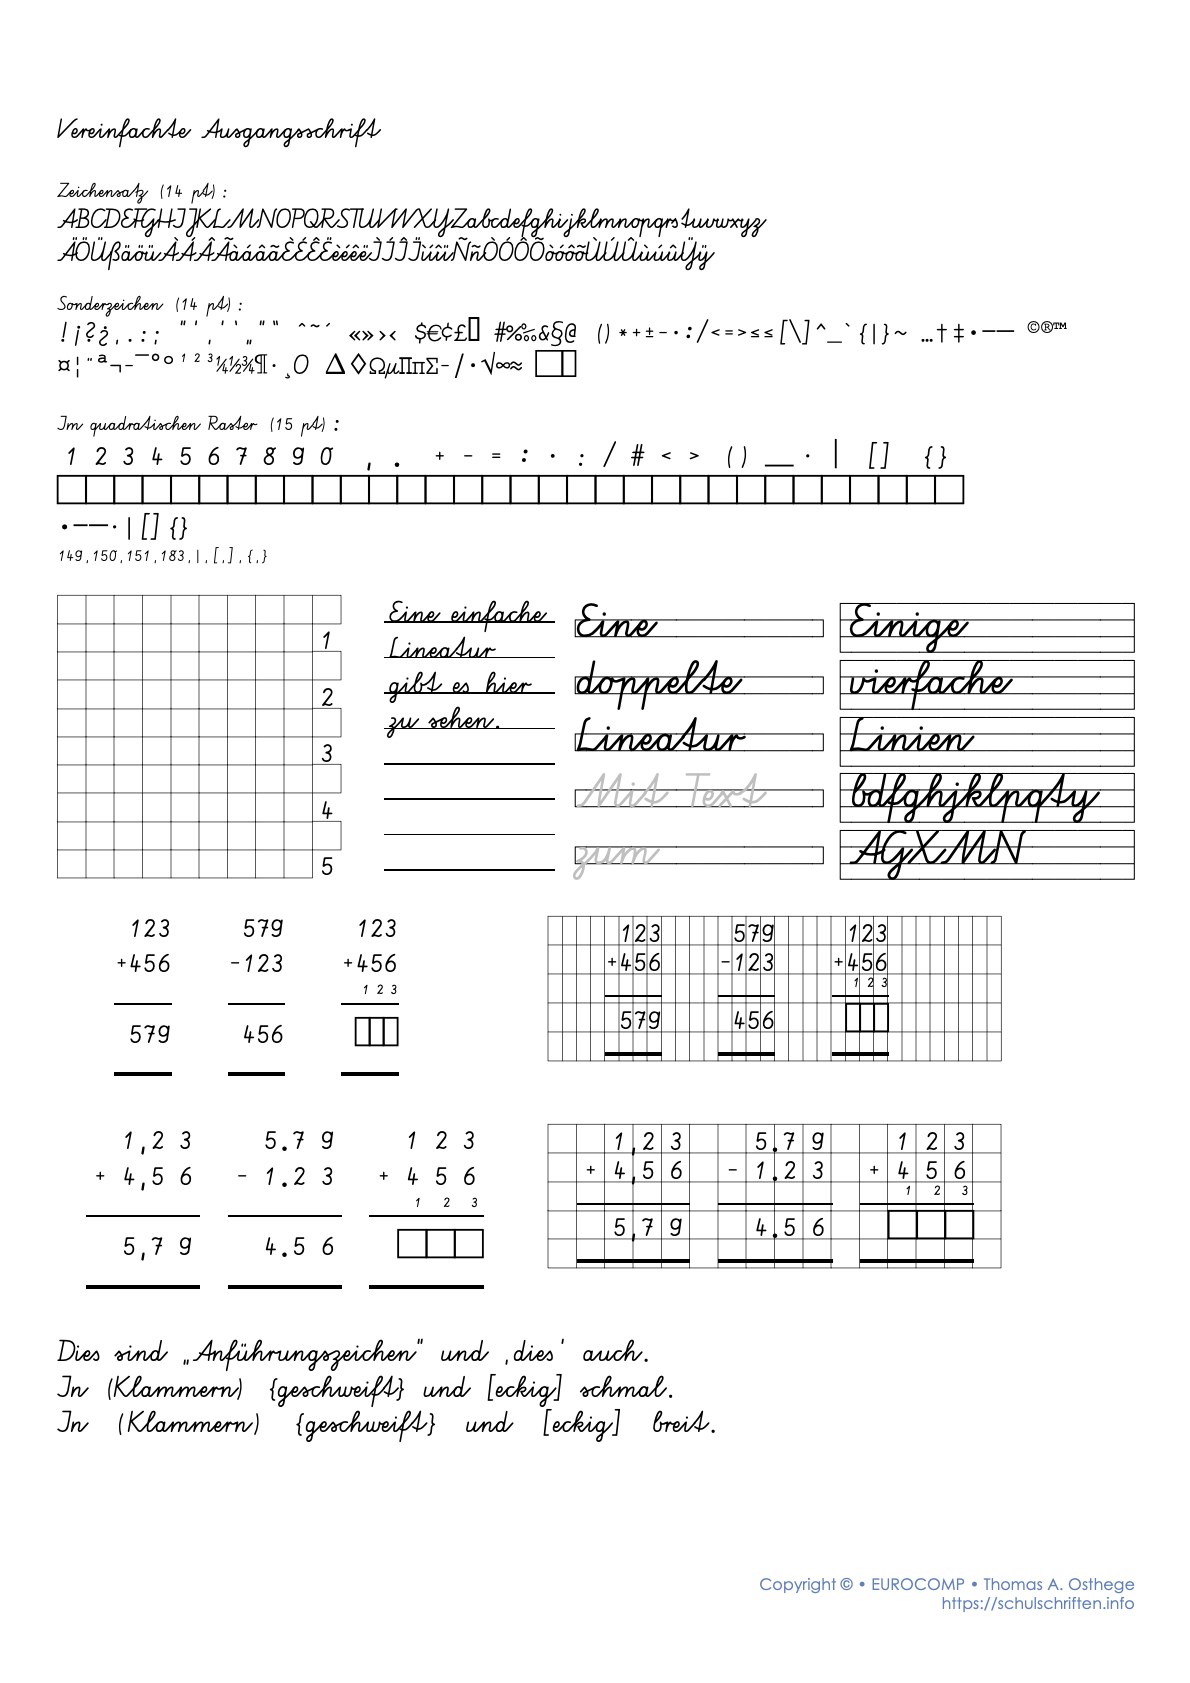 Vereinfachte Ausgangsschrift
Zeichensatz (14 pt) :
ABCDEFGHIJKLMNOPQRSTUVWXYZabcdefghijklmnopqrstuvwxyz
ÄÖÜßäöüÀÁÂÃàáâãÈÉÊËèéêëÌÍÎÏìíîïÑñÒÓÔÕòóôõÙÚÛùúûŸÿ
Sonderzeichen (14 pt) :
!¡?¿,.:; "' ‚ '‛ „ "‟ ˆ˜´ «»›‹ $€¢£ #%‰&§@ ()*+±−·:/<=>≤≤[\]^_`{|}~ …†‡•–— ©®™
¤¦¨ª¬-¯°º¹²³¼½¾¶·¸O Δ◊ΩµΠπΣ-/·√∞≈
Im quadratischen Raster (15 pt) :
1 2 3 4 5 6 7 8 9 0 , . + − = : · : / # < > () _ · | [] {}
•–—·|[] {}
149,150,151,183,|,[,],{,}
1
2
3
4
5
Eine einfache
Lineatur
gibt es hier
zu sehen.
Eine
doppelte
Lineatur
Mit Text
zum
Einige
vierfache
Linien
bdfghjklpqty
AGXMN
123 579 123
+456 −123 +456
1 2 3
579 456
123 579 123
+456 −123 +456
1 2 3
579 456
1,2 3 5.7 9 1 2 3
+ 4,5 6 − 1.2 3 + 4 5 6
1 2 3
5,7 9 4.5 6
1,2 3 5.7 9 1 2 3
+ 4,5 6 − 1.2 3 + 4 5 6
1 2 3
5,7 9 4.5 6
Dies sind „Anführungszeichen" und ‚dies' auch.
In (Klammern) {geschweift} und [eckig] schmal.
In (Klammern) {geschweift} und [eckig] breit.
Copyright © • EUROCOMP • Thomas A. Osthege
https://schulschriften.info